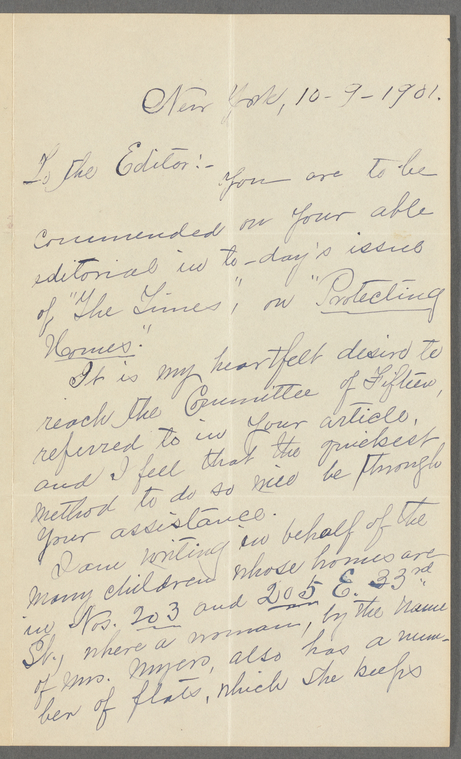 New York, 10-9-1901.
To the Editor:-
You are to be
commended on your able
editorial in to-day's issue
of "The Times", on "Protecting
Homes."
It is my heartfelt desire to
reach the Committee of Fifteen,
referred to in your article,
and I feel that the quickest
method to do so will be through
your assistance.
I am writing in behalf of the
many children whose homes are
in Nos. 203 and 205 E. 33rd
St., where a woman, by the name
of Mrs. Myers, also has a num-
ber of flats, which she keeps